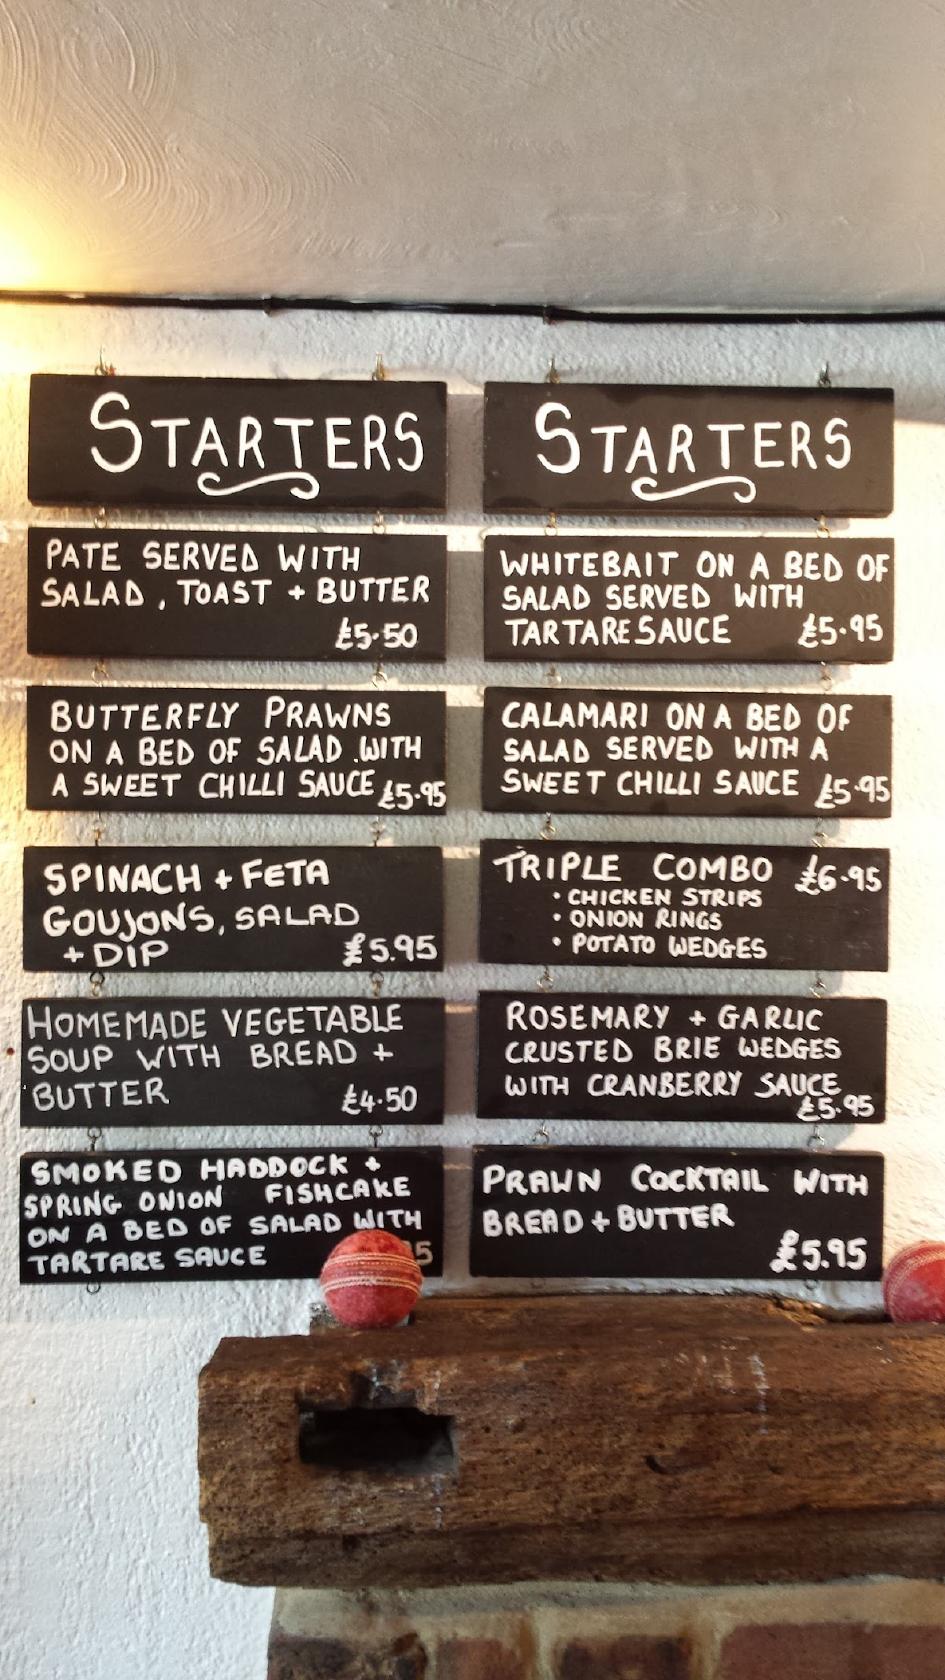 STARTERS
PATE SERVED WITH
SALAD, TOAST + BUTTER
£5.50
BUTTERFLY PRAWNS
ON A BED OF SALAD WITH
A SWEET CHILLI SAUCE £5.95
SPINACH + FETA
GOUJONS, SALAD
+ DIP £5.95
HOMEMADE VEGETABLE
SOUP WITH BREAD +
BUTTER £4.50
SMOKED HADDOCK +
SPRING ONION FISHCAKE
ON A BED OF SALAD WITH
TARTARE SAUCE
STARTERS
WHITEBAIT ON A BED OF
SALAD SERVED WITH
TARTARE SAUCE £5.95
CALAMARI ON A BED OF
SALAD SERVED WITH A
SWEET CHILLI SAUCE £5.95
TRIPLE COMBO £6.95
• CHICKEN STRIPS
• ONION RINGS
• POTATO WEDGES
ROSEMARY + GARLIC
CRUSTED BRIE WEDGES
WITH CRANBERRY SAUCE
£5.95
PRAWN COCKTAIL WITH
BREAD + BUTTER
£5.95